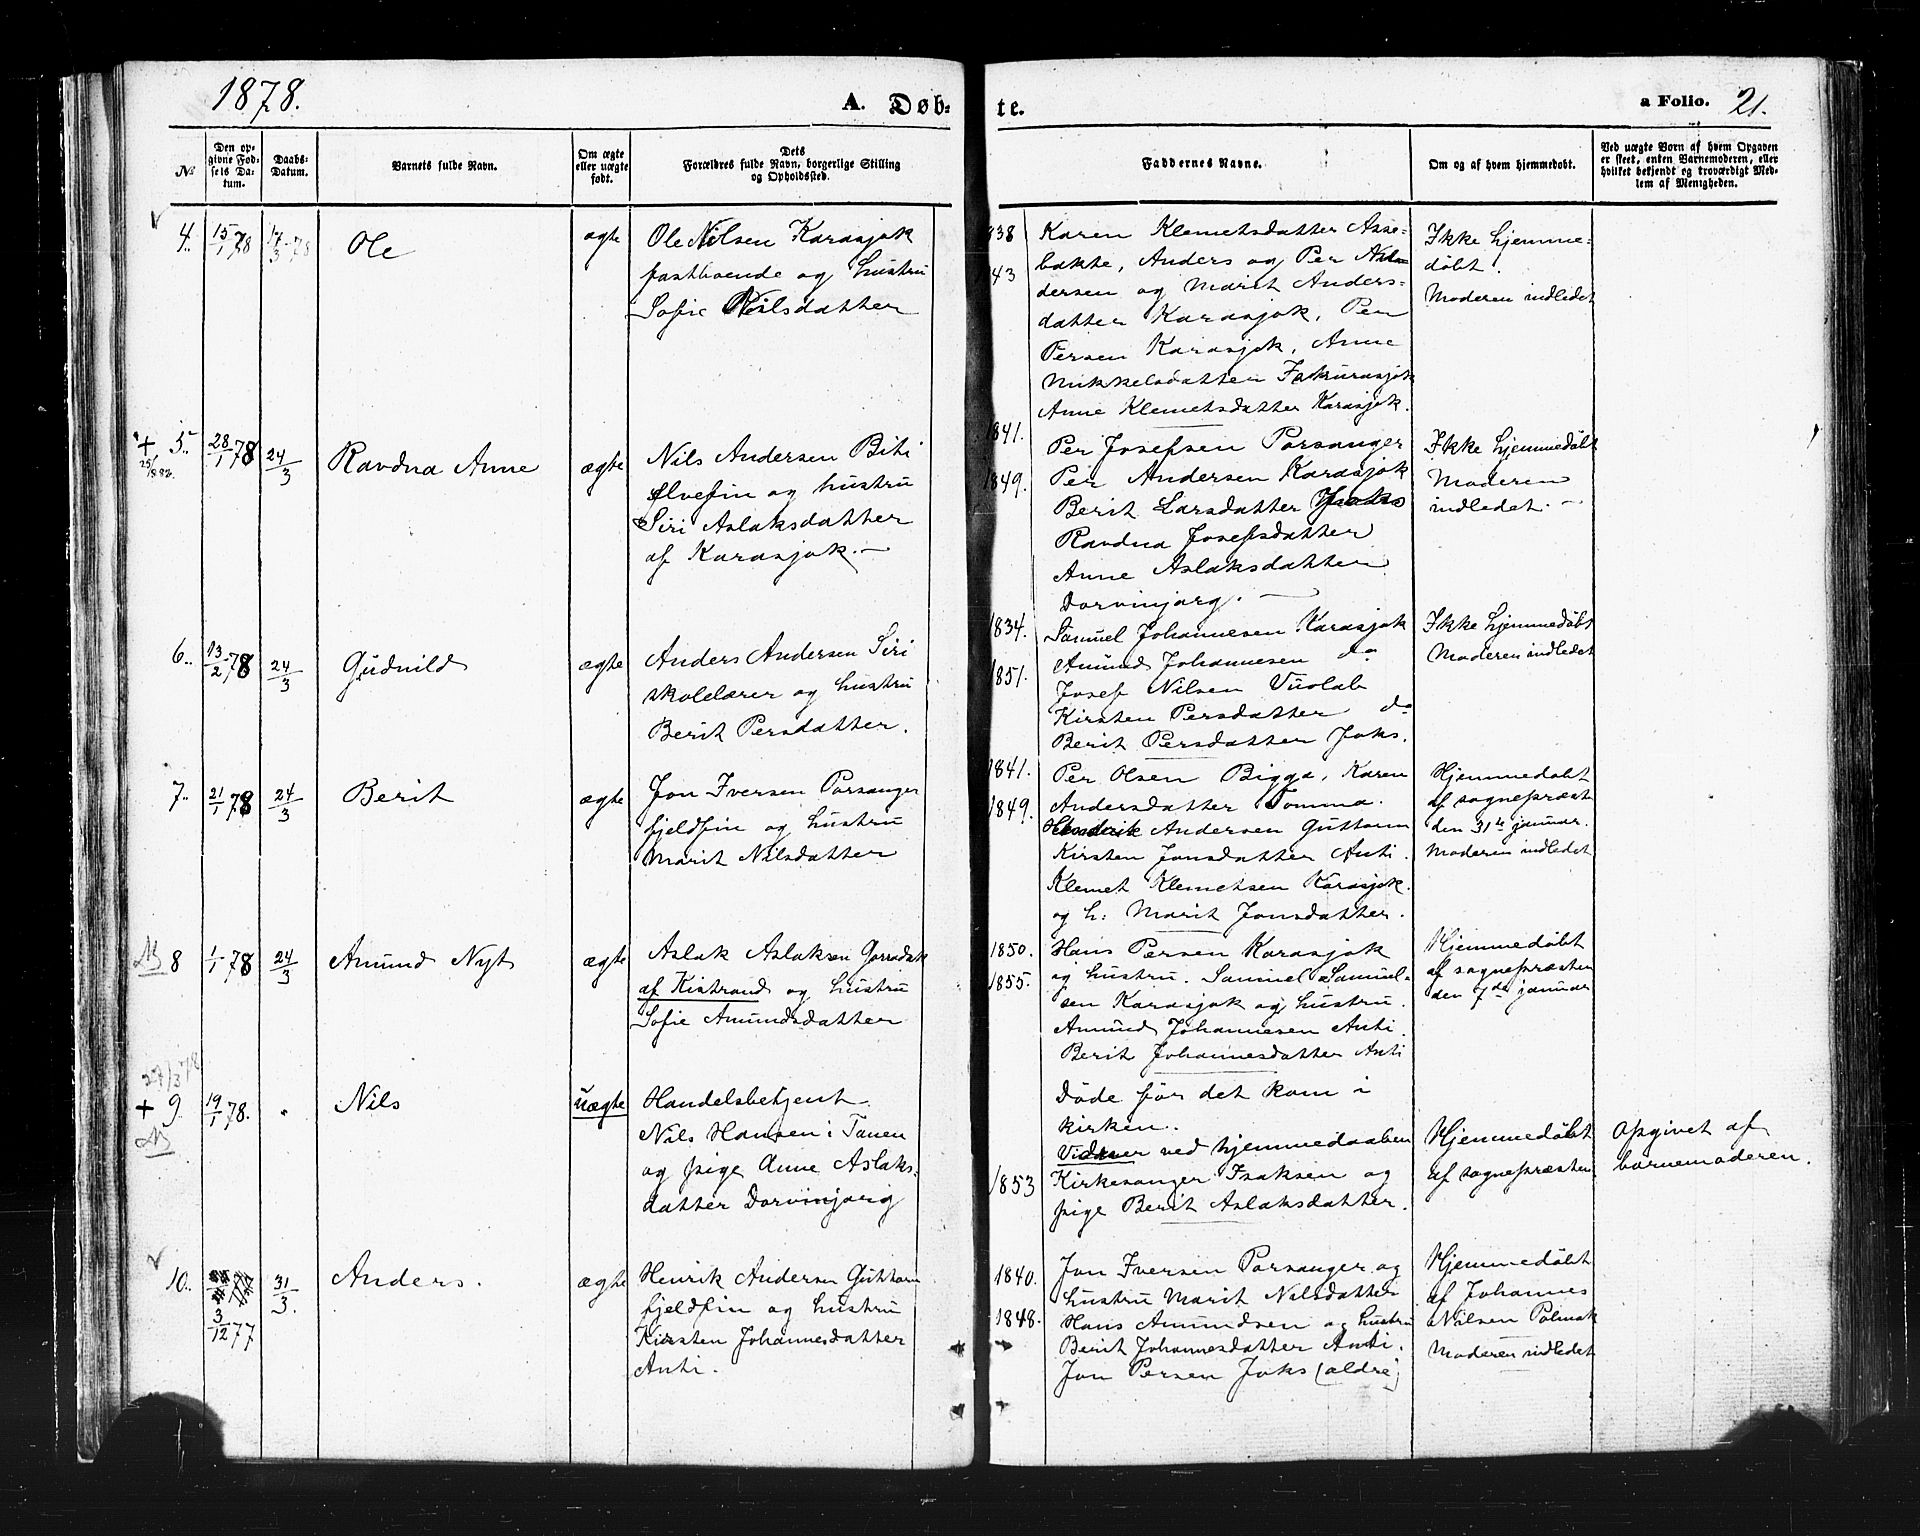 1878.
A. Døb-
te.
a Folio. 21.
№
Den op-
givne Fød-
sels Da-
tum.
Daabs-
Datum.
Barnets fulde Navn.
Om ægte
eller uægte
født.
Dets
Forældres fulde Navn, borgerlige Stilling
og Opholdssted.
Faddernes Navne.
Om og af hvem hjemmedøbt.
Ved uægte Born af hvem Opgaven
er skeet, enten Barnemoderen, eller
hvilket bekjendt og troværdigt Med-
lem af Menigheden.
4. 15/1 78 17/3 78 Ole ægte
Ole Nilsen Karasjok
fastboende og hustru
Sofie Nilsdatter
838
43
Karen Klemetsdatter Asse-
bakte, Anders og Per
dersen og Marit Anders-
datter Karasjok, Per
Persen Karasjok, Anne
Mikkelsdatter
Anne Klemetsdatter Karasjok.
Ikke hjemme-
døbt.
Moderen indledet
+ 5. 28/1 78 24/3 Ravdna Anne ægte
25/
1882.
Nils Andersen Biti
Elvefin og hustru
Siri Aslaksdatter
af Karasjok.
1841.
1849.
Per Josefsen Porsanger
Per Andersen Karasjok
Berit Larsdatter
Ravdna Josefsdatter
Anne Aslaksdatter
Dorvinjarg.
Ikke hjemmedøbt
Moderen
indledet.
6. 13/2 78 24/3 Gudnild ægte
Anders Andersen Siri
skolelærer og hustru
Berit Persdatter.
1834.
1851.
Samuel Johannesen Karasjok
Amund Johannesen do
Josef Nilsen Vuolab
Kirsten Persdatter do
Berit Persdatter Joks.
Ikke hjemmedøbt
Moderen indledet
7. 21/1 78 24/3 Berit ægte
Jon Iversen Porsanger
fjeldfin og hustru
Marit Nilsdatter
1841.
1849.
Per Olsen Bigga, Karen
Andersdatter Somma.
Henrik Andersen Guttorm
Kirsten Jonsdatter Anti.
Klemet Klemetsen Karasjok.
og h: Marit Jonsdatter.
Hjemmedøbt
af sognepræst
den 31te januar.
Moderen indledet
8 1/1 78 24/3 Amund Nyt ægte
Aslak Aslaksen
af Kistrand og hustru
Sofie Amundsdatter
1850.
1855.
Hans Persen Karasjok
og hustru. Samuel Samuel-
sen Karasjok og hustru.
Amund Johannesen Anti.
Berit Johannesdatter Anti
Hjemmedøbt
af sognepræsten
den 7de januar
27/3 78
+ 9. 19/1 78. " Nils uægte
Handelsbetjent
Nils Hansen i Tanen
og pige Anne Aslaks-
datter Dorvinjarg
1853
Døde før det kom i
kirken.
Vidner ved hjemmedaaben
Kirkesanger Isaksen og
pige Berit Aslaksdatter.
Hjemmedøbt
af sognepræsten
Opgivet af
barnemoderen.
10. 3/12 77 31/3. Anders. ægte
Henrik Andersen Guttorm
fjeldfin og hustru
Kirsten Johannesdatter
Anti.
1840.
1848.
Jon Iversen Porsanger og
hustru Marit Nilsdatter
Hans Amundsen og hustru
Berit Johannesdatter Anti.
Jon Persen Joks (ældre)
Hjemmedøbt
af Johannes
Nilsen Polmak
Moderen indledet